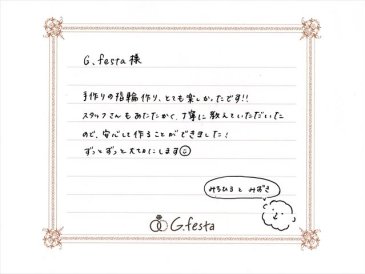 G.festa 様
手作りの指輪作り、とても楽しかったです!!
スタッフさんもあたたかく、丁寧に教えていただいた
ので、安心して作ることができました!
ずっとずっと大切にします
みちひろ と みずき
G.festa